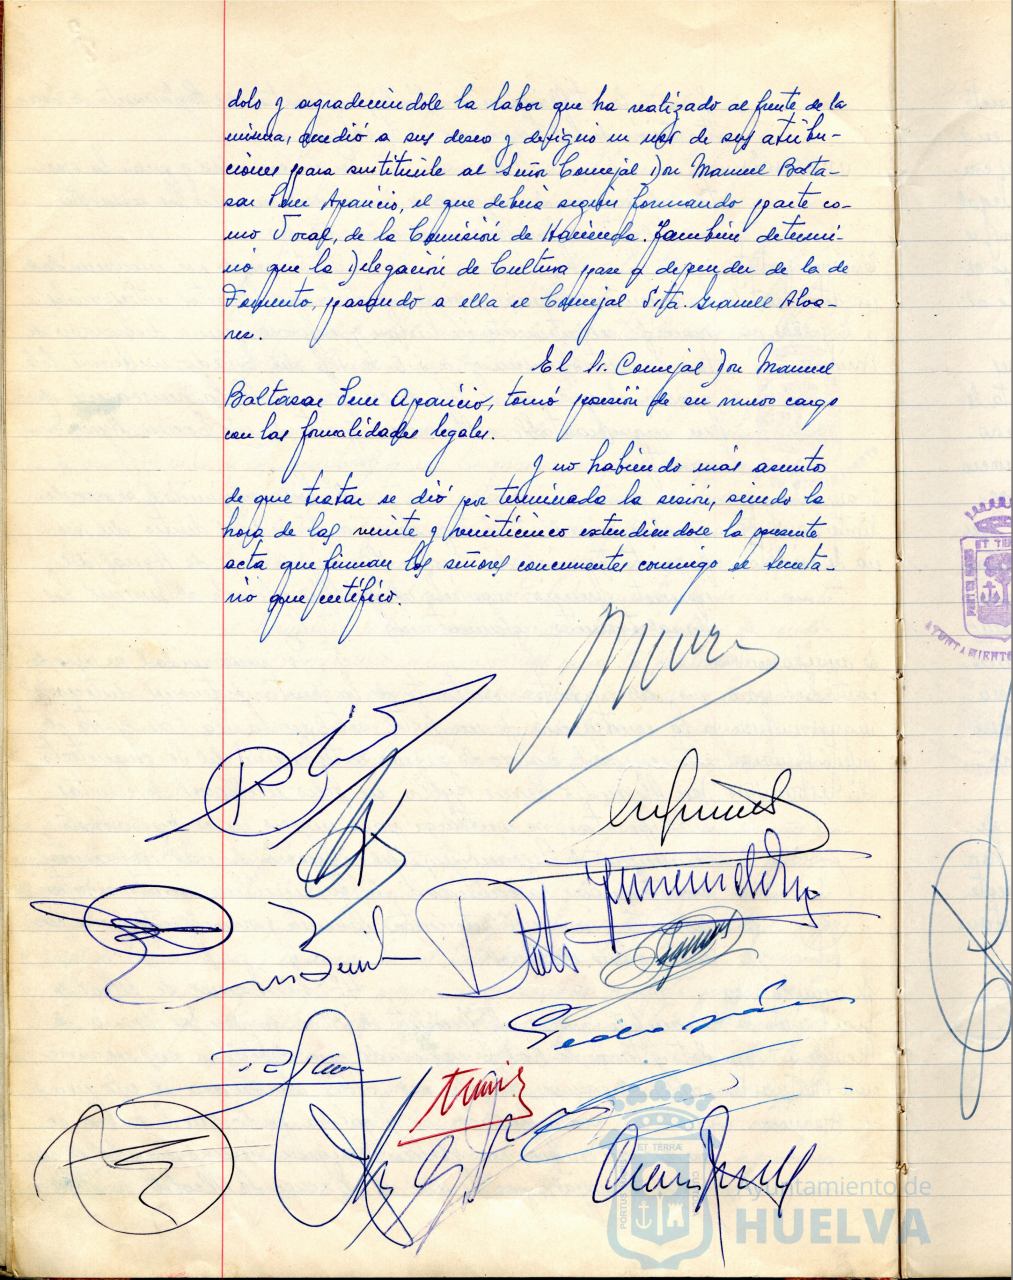 dolo y agradeciéndole la labor que ha realizado al frente de la
misma, accedió a sus deseo y designó en uso de sus atribu-
ciones para sustituirle al Señor Concejal Don Manuel Balta-
sar Aparicio, el que deberá seguir formando parte co-
mo Vocal, de la Comisión de Hacienda. También determi-
nó que la Delegación de Cultura pase a depender de la de
Fomento, pasando a ella el Concejal Srta. Granell Alva-
rez.
El Sr. Concejal Don Manuel
Baltasar Aparicio, tomó posesión de su nuevo cargo
con las formalidades legales.
Y no habiendo más asuntos
de que tratar se dió por terminada la sesión, siendo la
hora de las veinte y veinticinco extendiendose la presente
acta que firman los señores concurrentes conmigo el Secreta-
rio que certifico.
ET TERRAE
Ayuntamiento de
HUELVA